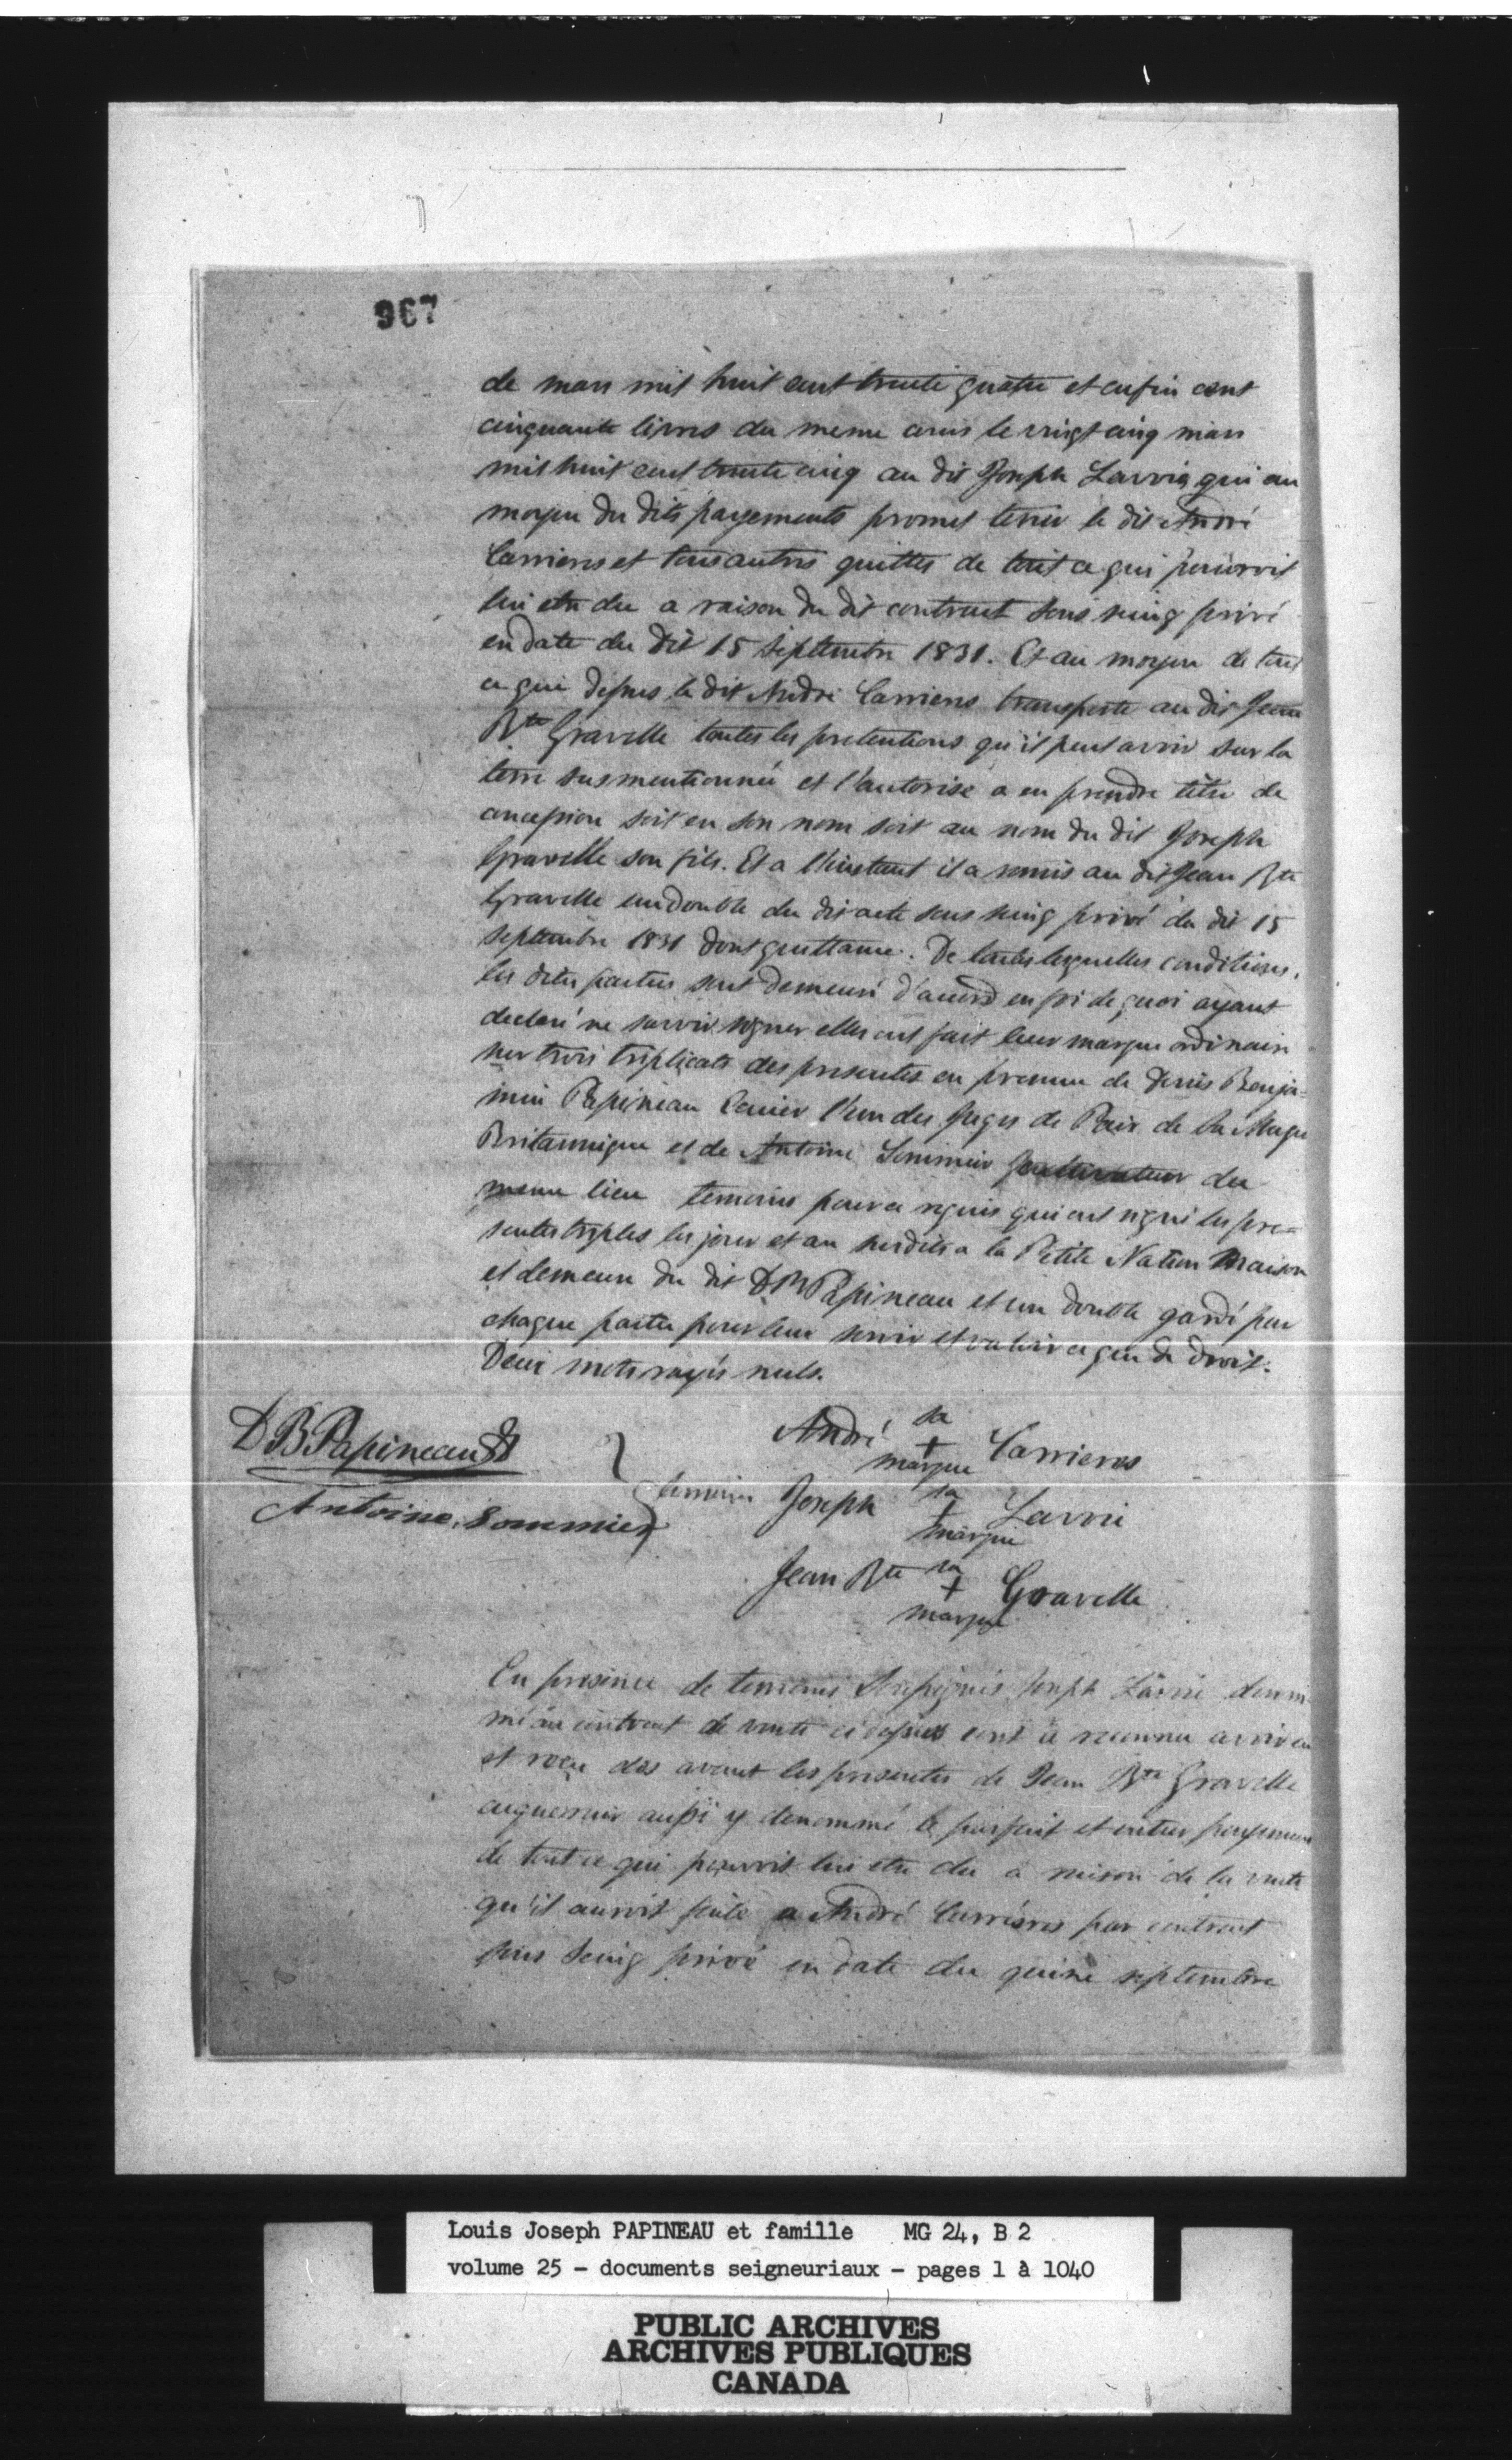 967
de mars mil huit cent trente quatre et enfin cent
cinquante livres du meme cours le vingt cinq mars
mil huit cent trente cinq au dit Joseph Lavoie qui au
moyen du dits payements promet tenir le dit André
Carrieres et tous autres quittes de tout ce qui pouvoit
lui etre du a raison du dit contract sous seing privé
en date du dit 15 Septembre 1831. Et au moyen de tout
ce qui dessus le dit André Carrieres transporte au dit Jean
Bte Gravelle toutes les pretentions qu'il peut avoir sur la
terre susmentionnée et l'autorise a en prendre titre de
concession soit en son nom soit au nom du dit Joseph
Gravelle son fils. Et a l'instant il a remis au dit Jean Bte
Gravelle un double du dit acte sous seing privé du dit 15
Septembre 1831 dont quittance. De toutes lesquelles conditions
les dites parties sont demeuré d'accord en foi de quoi ayant
declaré ne savoir signer elles ont fait leur marque ordinaire
sur trois triplicata des presentes en presence de Denis Benja=
min Papineau Ecuier l'un des Juges de Paix de Sa Maje
Britannique et de Antoine Sommier cultivateur du
meme lieu temoins pour ce requis qui ont signé les pre=
sentes triples les jour et an susdits a la Petite Nation maison
et demeure du dit DB Papineau et un double gardé par
chaque partie pour leur servir et valoir ce que de droit.
Deux mots rayés nuls.
DB Papineau
André sa + marque Carrieres
temoins
Antoine Sommier
Joseph sa + marque Lavoie
Jean Bte sa + marque Gravelle
En presence de temoins soussignés Joseph Lavoie denom
mé au contract de vente ci dessus a reconnu avoir eu
et reçu des avant les presentes de Jean Bte Gravelle
acquereur aussi y denommé le parfait et entier payement
de tout ce qui pouvoit lui etre du a raison de la vente
qu'il auroit faite a André Carrières par contract
sous Seing privé en date du quinze septembre
Louis Joseph PAPINEAU et famille MG 24, B 2
volume 25 - documents seigneuriaux - pages 1 à 1040
PUBLIC ARCHIVES
ARCHIVES PUBLIQUES
CANADA